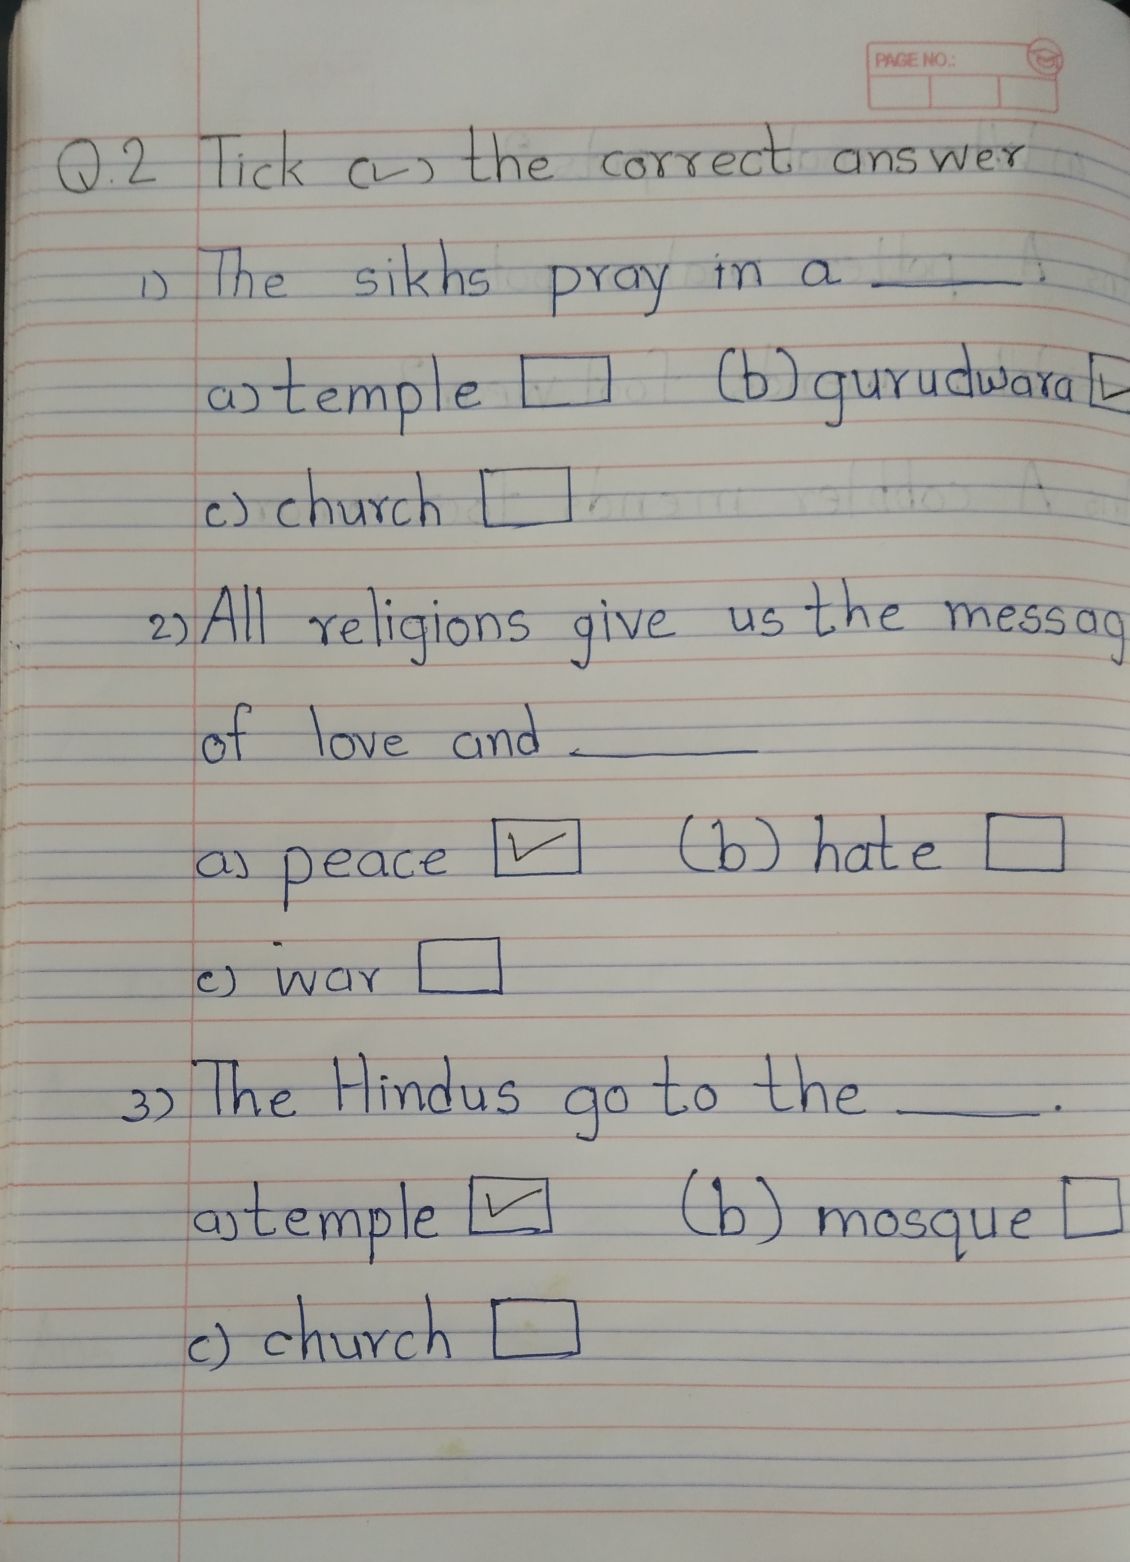 PAGE NO.:
Q.2 Tick (✓) the correct answer
1) The sikhs pray in a ______.
a) temple ☐ (b) gurudwara ☑
c) church ☐
2) All religions give us the messag
of love and ______
a) peace ☑ (b) hate ☐
c) war ☐
3) The Hindus go to the ______.
a) temple ☑ (b) mosque ☐
c) church ☐